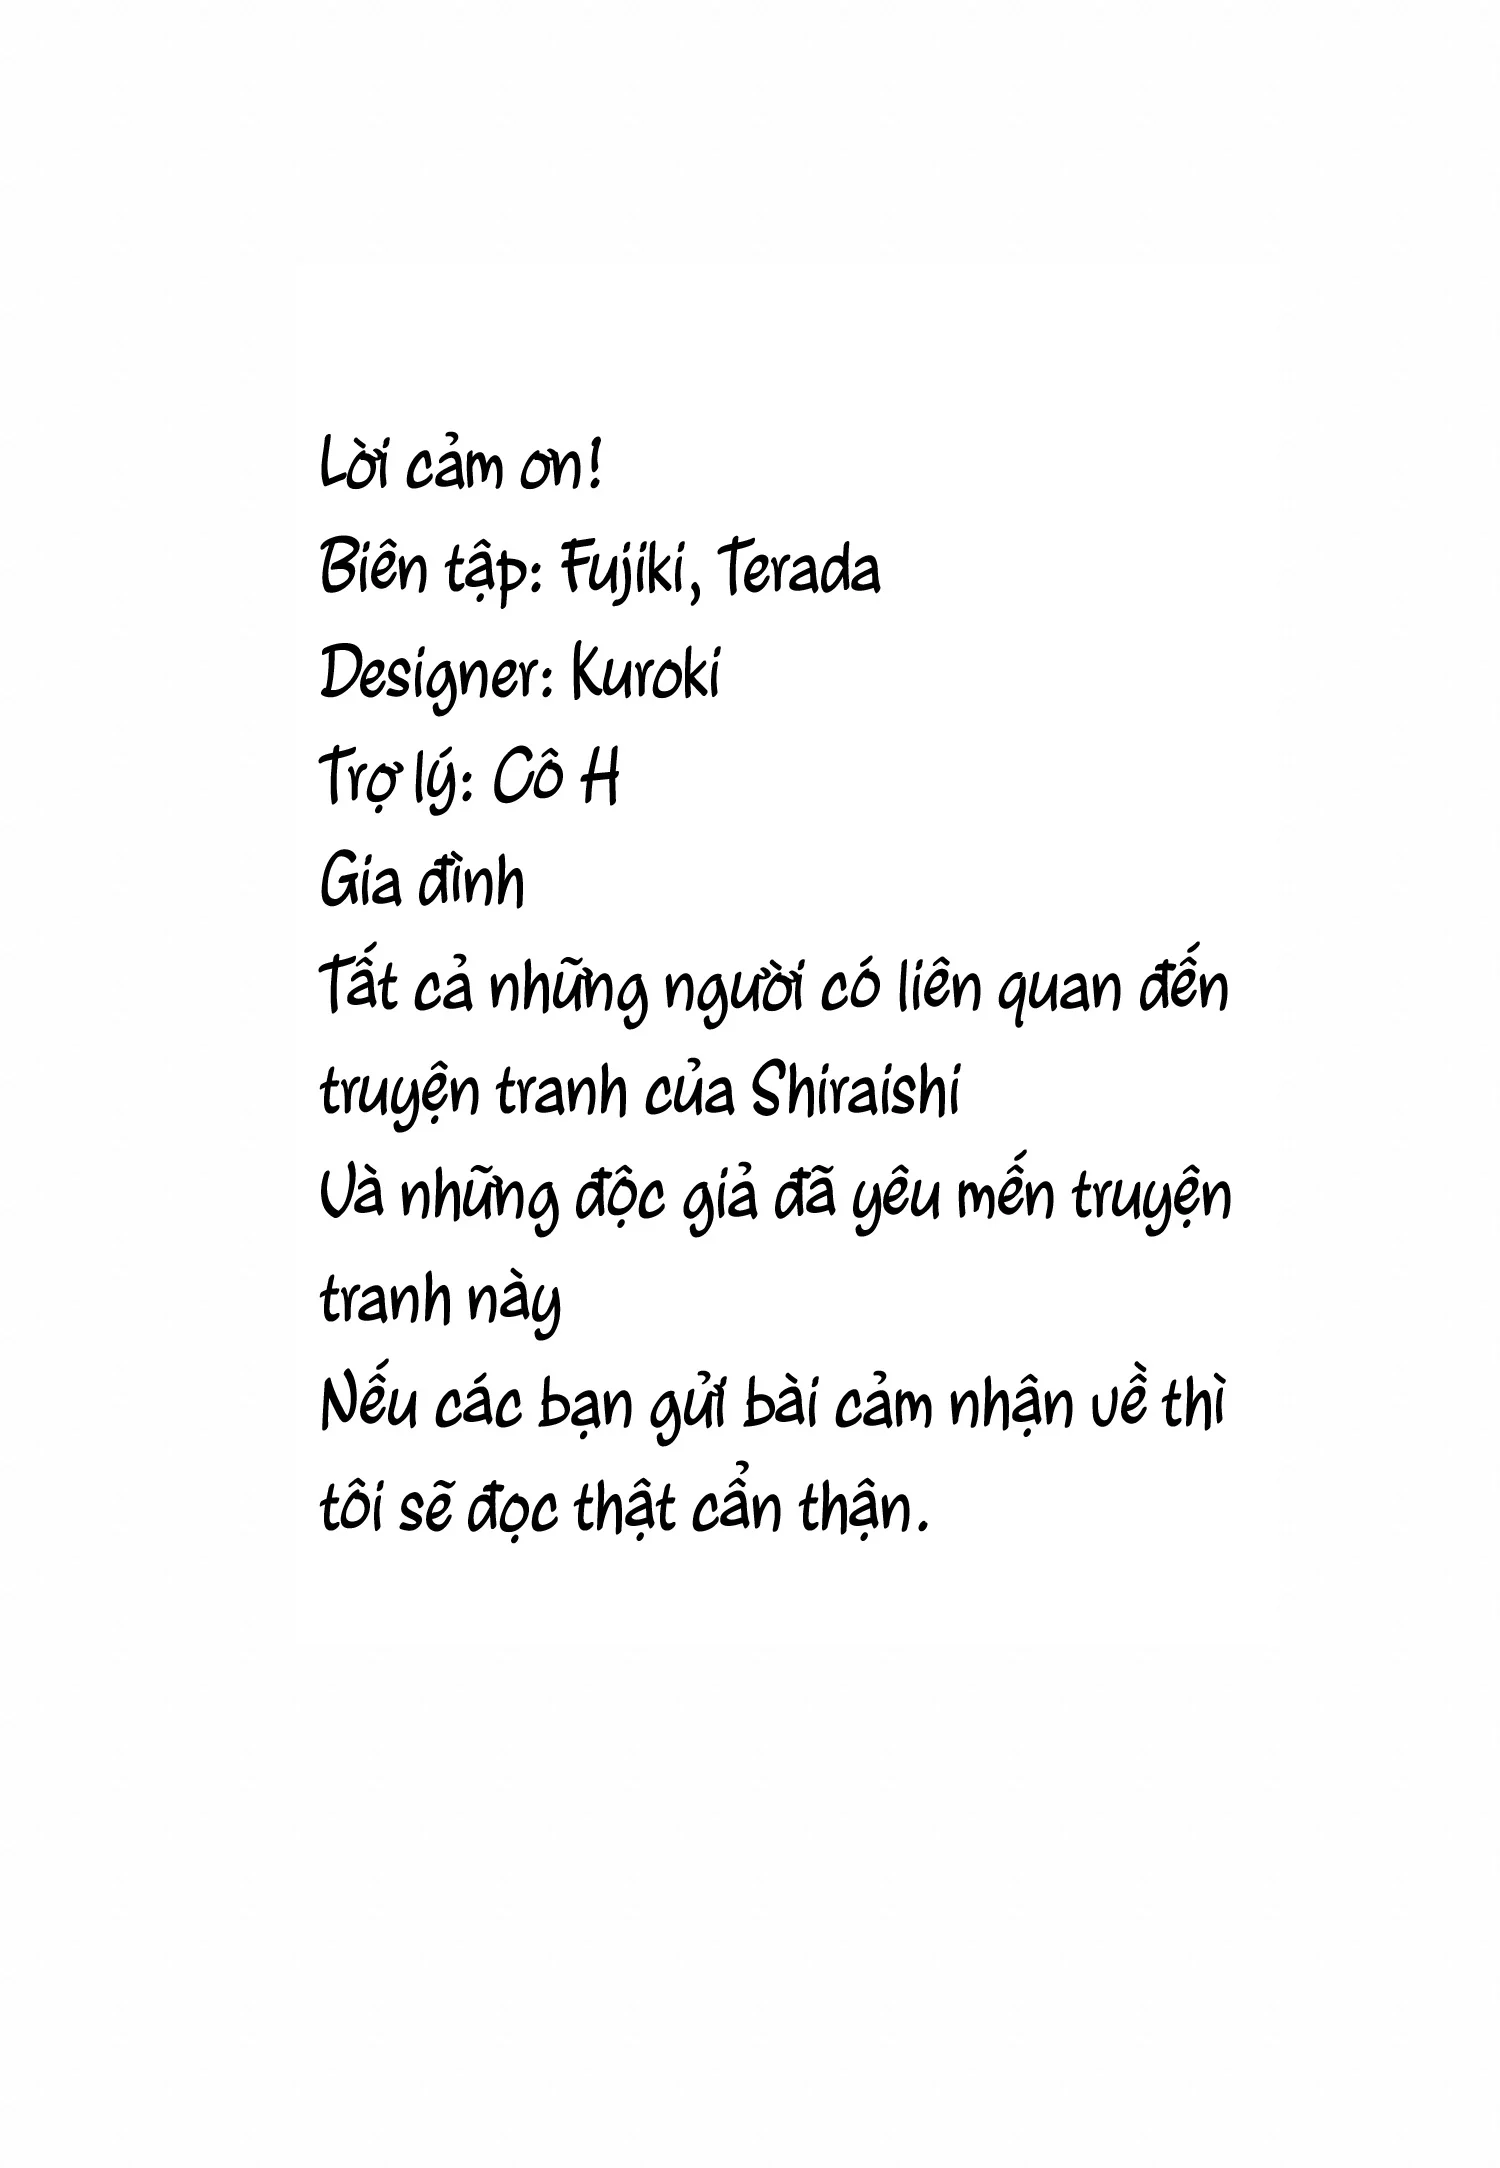 Lời cảm ơn!
Biên tập: Fujiki, Terada
Designer: Kuroki
Trợ lý: Cô H
Gia đình
Tất cả những người có liên quan đến
truyện tranh của Shiraishi
Và những độc giả đã yêu mến truyện
tranh này
Nếu các bạn gửi bài cảm nhận về thì
tôi sẽ đọc thật cẩn thận.